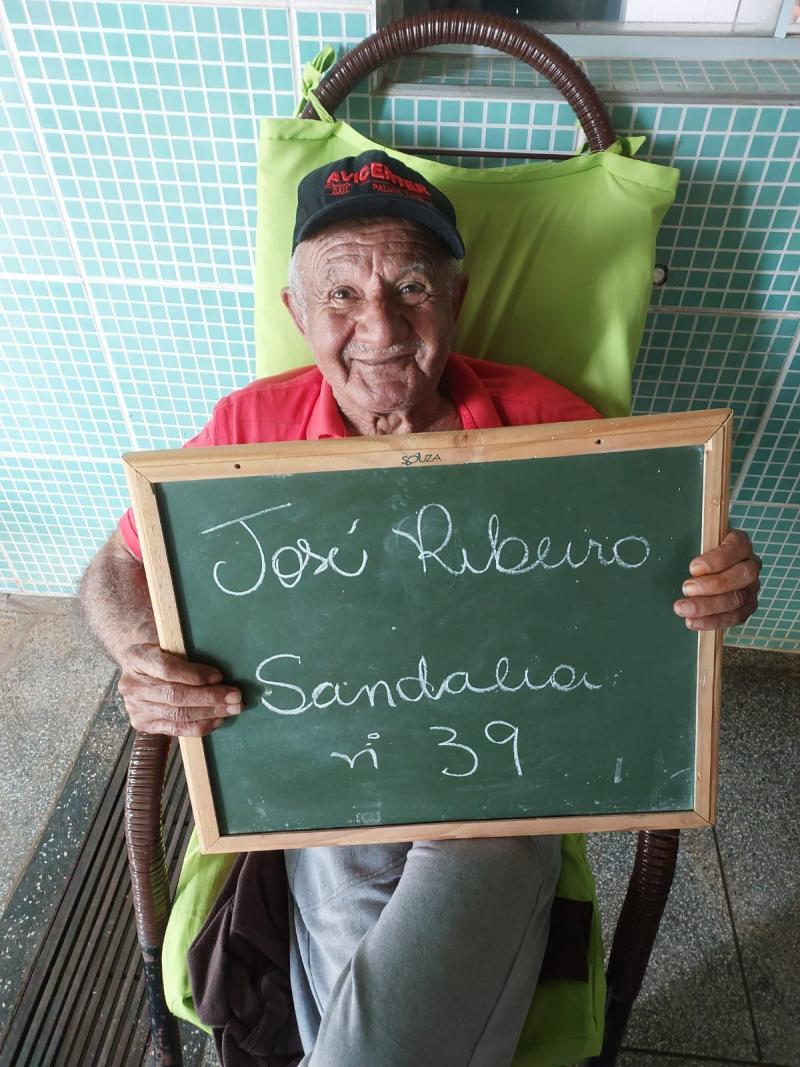 AVICENTER
SOUZA
José Ribeiro
Sandalia
nº 39